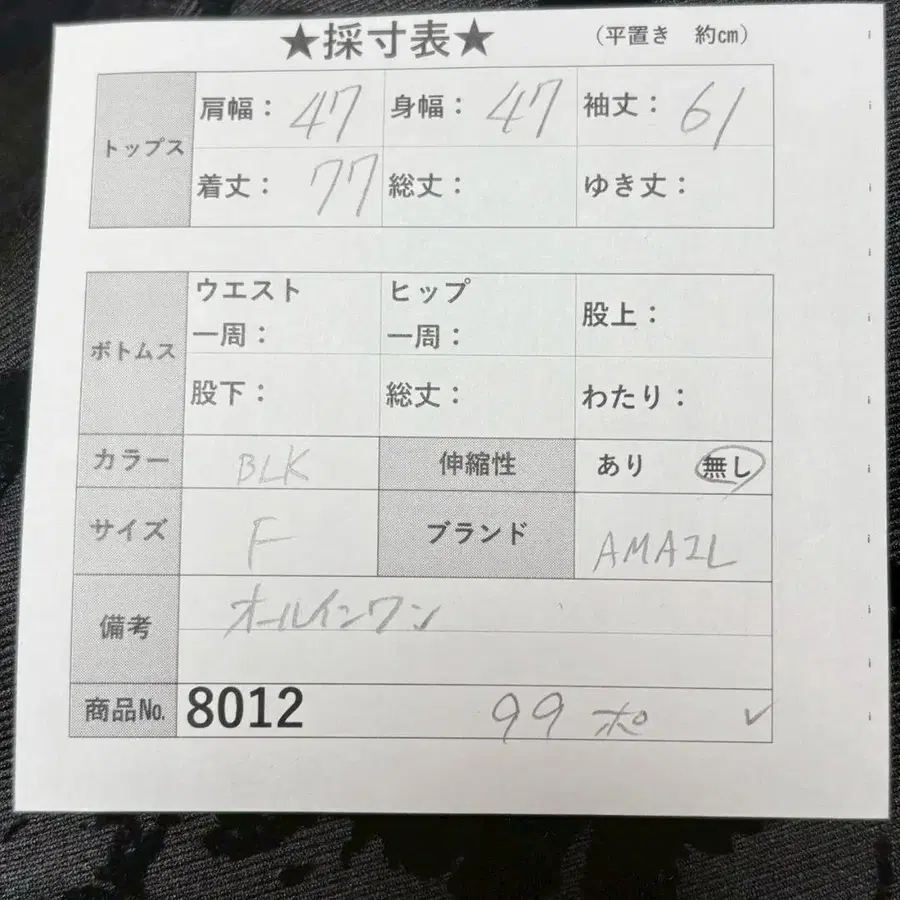 ★採寸表★ (平置き 約㎝)
トップス
肩幅: 47 身幅: 47 袖丈: 61
着丈: 77 総丈: ゆき丈:
ボトムス
ウエスト一周: ヒップ一周: 股上:
股下: 総丈: わたり:
カラー BLK 伸縮性 あり 無し
サイズ F ブランド AMAIL
備考 オールインワン
商品№. 8012 99 ポ ✓